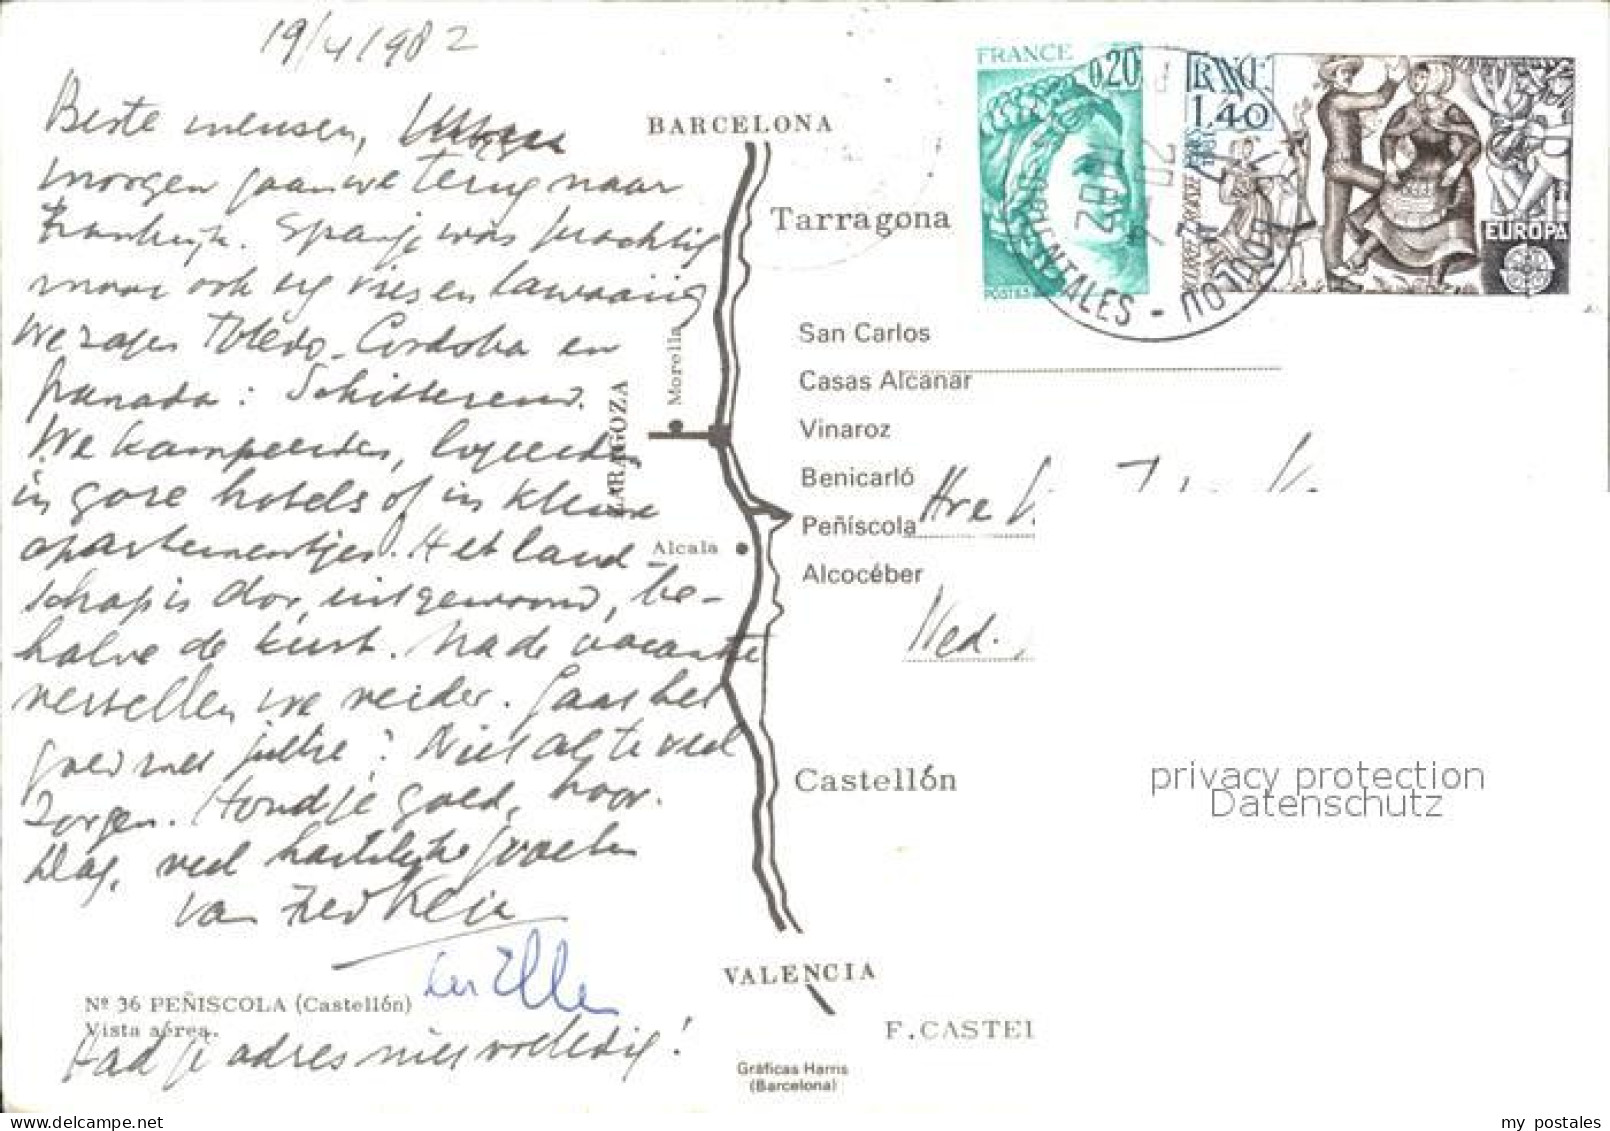 19/4/1982
Beste mensen,
morgen gaan we terug naar
Frankrijk. Spanje was prachtig
maar ook erg vies en lawaaiig
We zagen Toledo, Cordoba en
Granada: Schitterend.
We kampeerden, logeerden
in gore hotels of in kleine
apartementjes. Het land-
schap is dor, uitgewoond, be-
halve de kust. Na de vacantie
vertellen we verder. Gaat het
goed met jullie? Niet al te veel
zorgen. Houd je goed, hoor.
Dag, veel hartelijke groeten
van Fred Klein
en Ellen
Had je adres niet volledig!
Nº 36 PEÑISCOLA (Castellón)
Vista aérea.
BARCELONA
Tarragona
San Carlos
Casas Alcanar
Vinaroz
Benicarló
Peñíscola
Alcocéber
Morella
ZARAGOZA
Alcala
Castellón
VALENCIA
F. CASTEL
Gráficas Harris
(Barcelona)
FRANCE
0,20
POSTES
FRANCE
1,40
EUROPA
1982
ORIENTALES - LE BOULOU
Hre
Ned.
privacy protection
Datenschutz
my postales